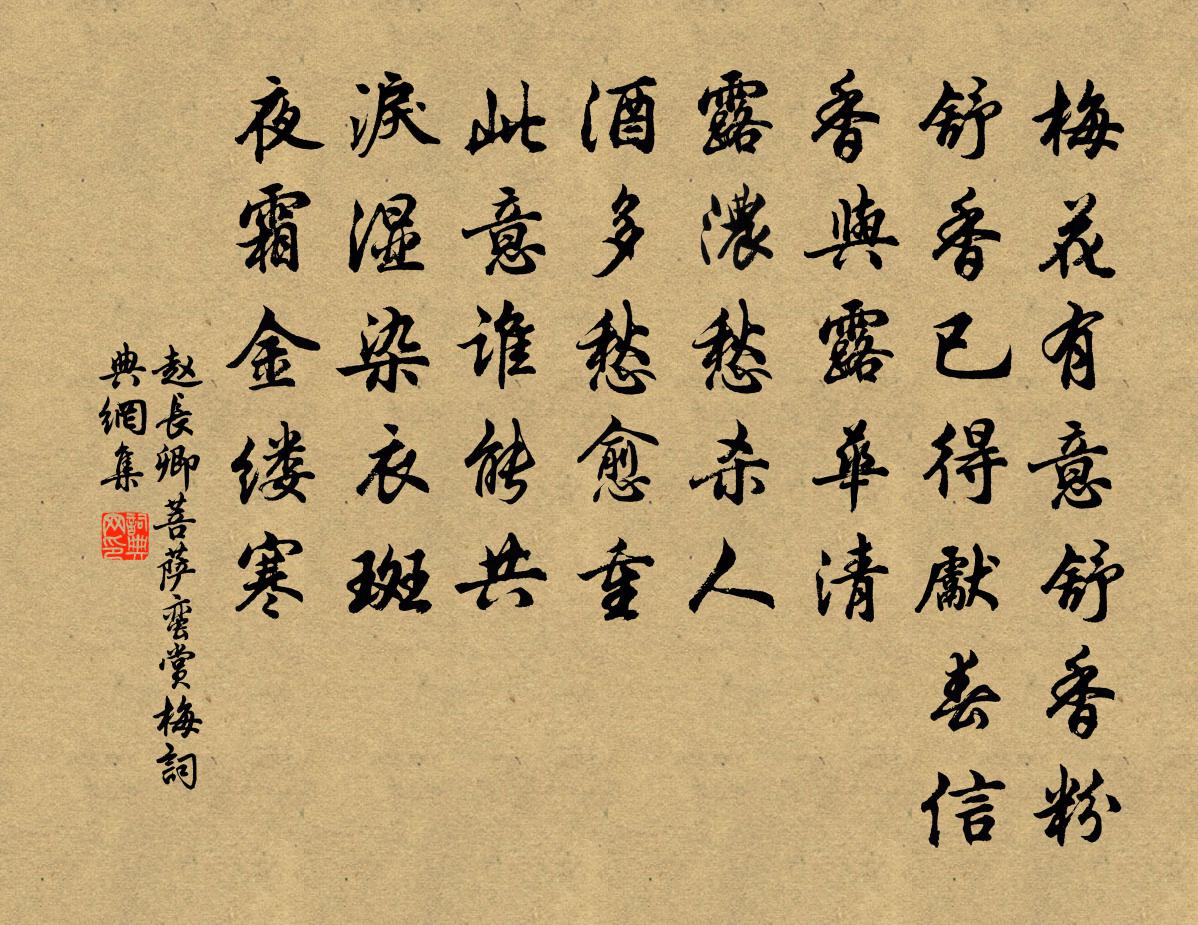 梅花有意舒香粉
舒香已得獻春信
香與露華清
露濃愁杀人
酒多愁愈重
此意谁能共
淚湿染衣斑
夜霜金缕寒
赵長卿菩萨蛮赏梅詞
典網集
詞典网印